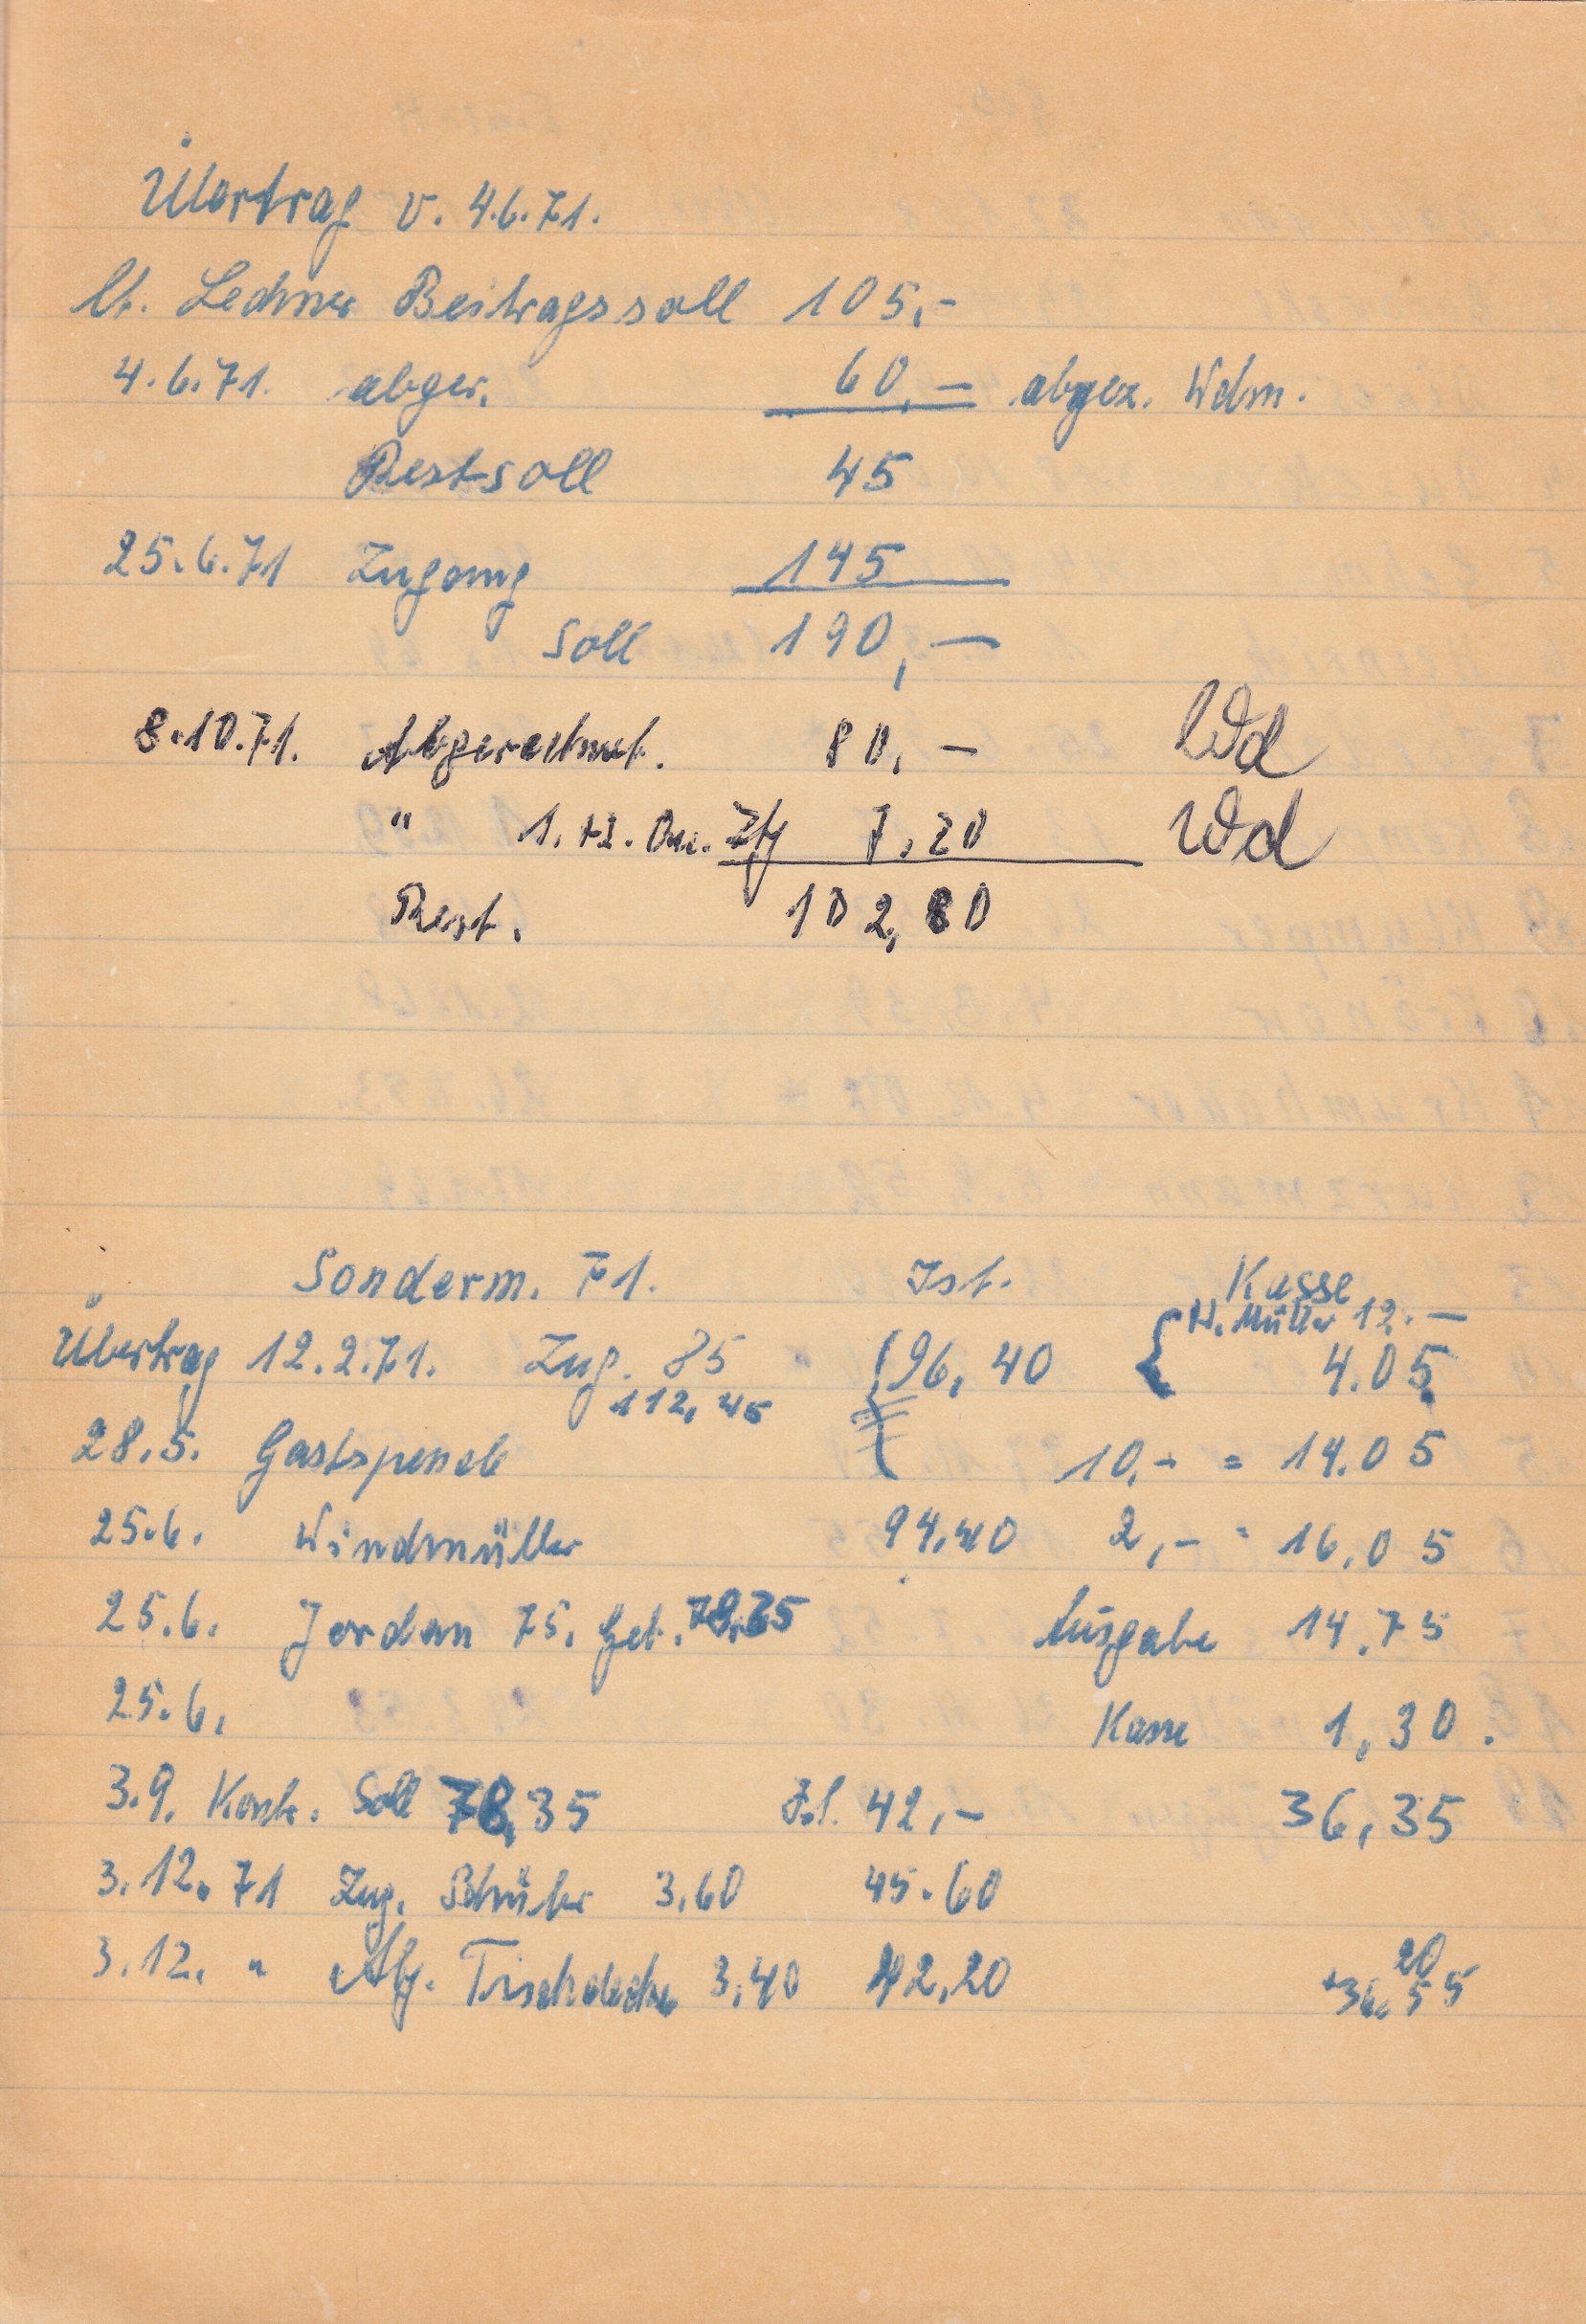 Übertrag v. 4.6.71.
lt. Lechner Beitragssoll 105,-
4.6.71. abger. 60,- abgez. Wdm.
Restsoll 45
25.6.71 Zugang 145
Soll 190,-
8.10.71. Abgerechnet. 80,- Wd
" 1. 7,20 Wd
Rest. 102,80
Sonderm. 71. Ist. Kasse
H. Müller 12.-
Übertrag 12.2.71. Zug. 85 96,40 4.05
112,45
28.5. Gastspende 10,- = 14.05
25.6. Windmüller 94,40 2,- = 16,05
25.6. Jordan 75. Geb. Ausgabe 14.75
25.6. Kasse 1,30.
3.9. Soll 78,35 42,- 36,35
3.12.71 Zug. 3,60 45.60
20
3.12. " Abg. Tischdecke 3,40 42,20 36,55